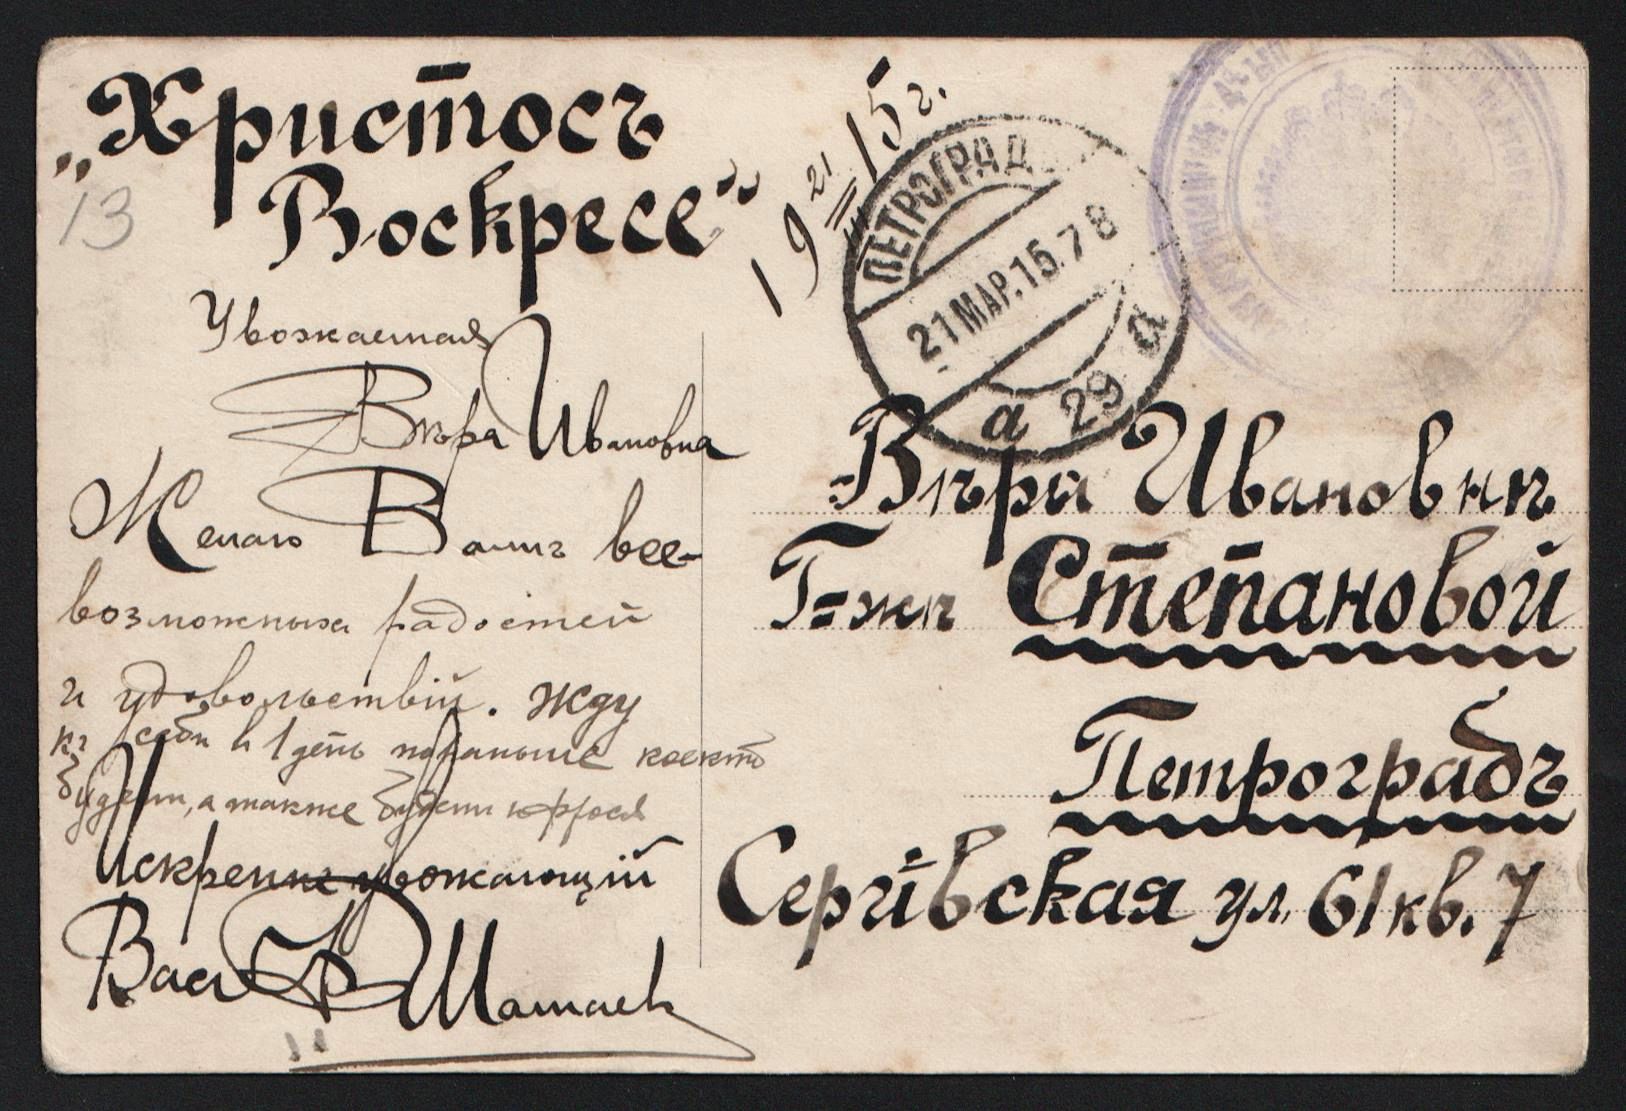 „Христосъ
Воскресе“
13
19 21/III 15 г.
ПЕТРОГРАД
21 МАР. 15. 7 8
а 29 а
Уважаемая
Вѣра Ивановна
Желаю Вамъ все-
возможныхъ радостей
и удовольствій. Жду
къ себѣ на 1 день кое кто
будетъ, а также будетъ
Искренне уважающій
Вас Шатаевъ
Вѣрѣ Ивановнѣ
Г=жѣ Степановой
Петроградъ
Сергіевская ул. 61 кв. 7